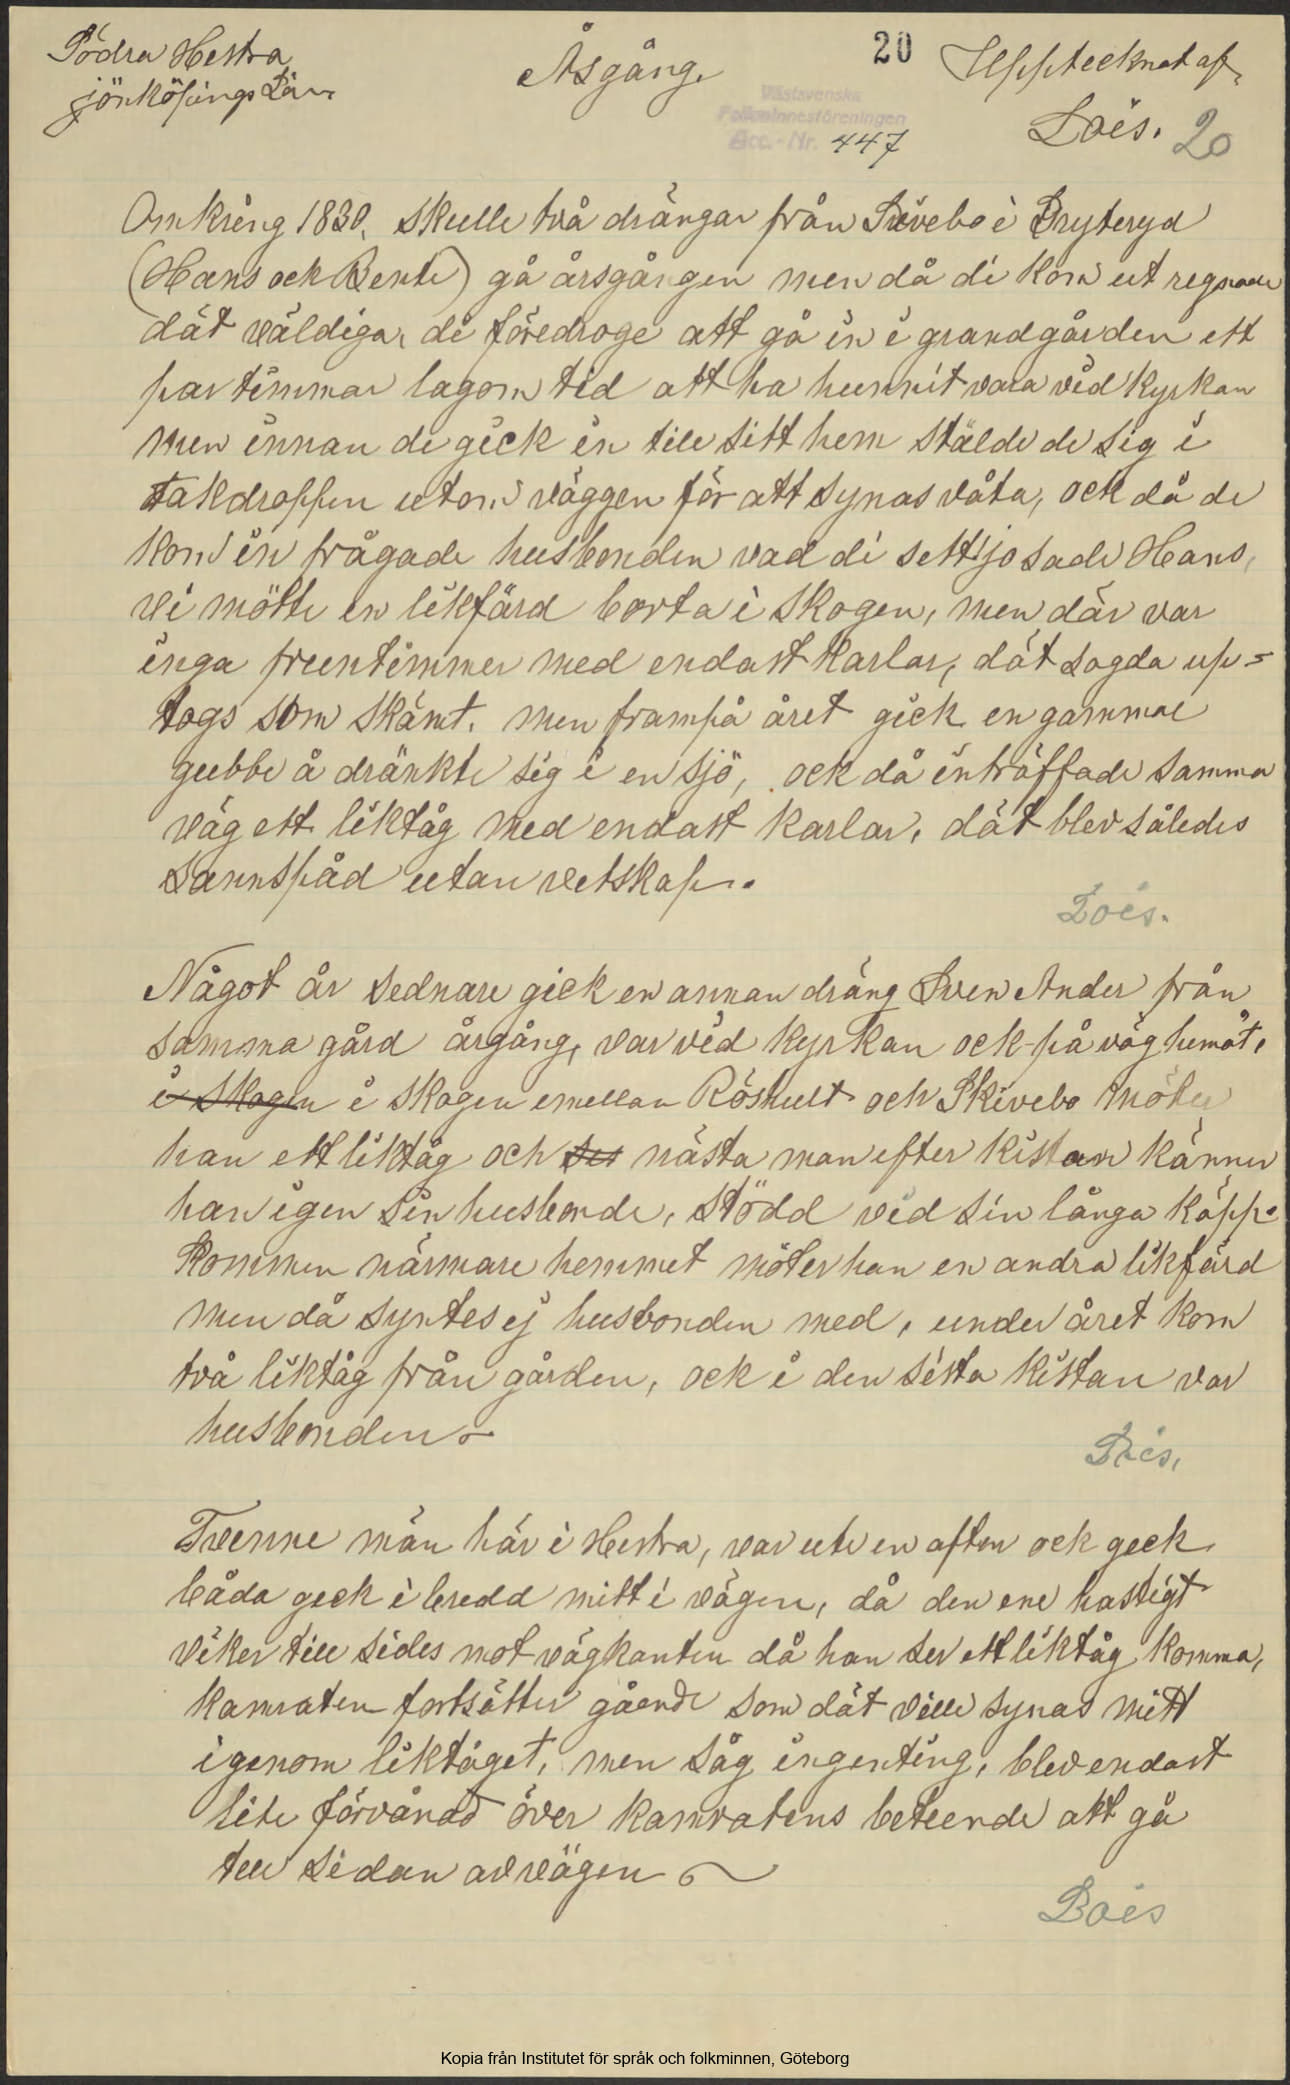 Södra Hestra
jönköpings Län.
Åsgång.
20
Upptecknat af.
Loés.
20
Västsvenska
Folkminnesföreningen
Acc.-Nr. 447
Omkring 1830, skulle två drängar från i Bryteryd
(Hans ock Bente) gå årsgången men då di kom ut regnade
dät väldiga, de föredroge att gå in i grandgården ett
par timmar lagom tid att ha hunnit vara vid kyrkan
men innan de gick in till sitt hem stälde de sig i
takdroppen utom väggen för att synas våta, ock då de
kom in frågade husbonden vad di sett, jo sade Hans,
vi mötte en likfärd borta i skogen, men där var
inga fruntimmer med endast karlar, dät sagda up=
togs som skämt. men frampå året gick en gammal
gubbe å dränkte sig i en sjö, ock då inträffade samma
väg ett liktåg med endast karlar, dät blev således
sannspåd utan vetskap.
Loés.
Något år sednare gick en annan dräng Sven Ander från
samma gård årgång, var vid kyrkan ock på väg hemåt,
i skogen i skogen emellan Röshult och Skivebo möter
han ett liktåg och ser nästa man efter kistan känner
han igen sin husbonde, stödd vid sin långa käpp.
Kommen närmare hemmet möter han en andra likfärd
men då syntes ej husbonden med, under året kom
två liktåg från gården, ock i den sista kistan var
husbonden
Loés.
Tvenne män här i Hestra, var ute en afton ock geck
båda geck i bredd mitt i vägen, då den ene hastigt
viker till sides mot vägkanten då han ser ett liktåg komma,
kamraten fortsätter gående som dät ville synas mitt
igenom liktåget, men såg ingenting, blev endast
lite förvånad över kamratens beteende att gå
till sidan av vägen
Loés
Kopia från Institutet för språk och folkminnen, Göteborg